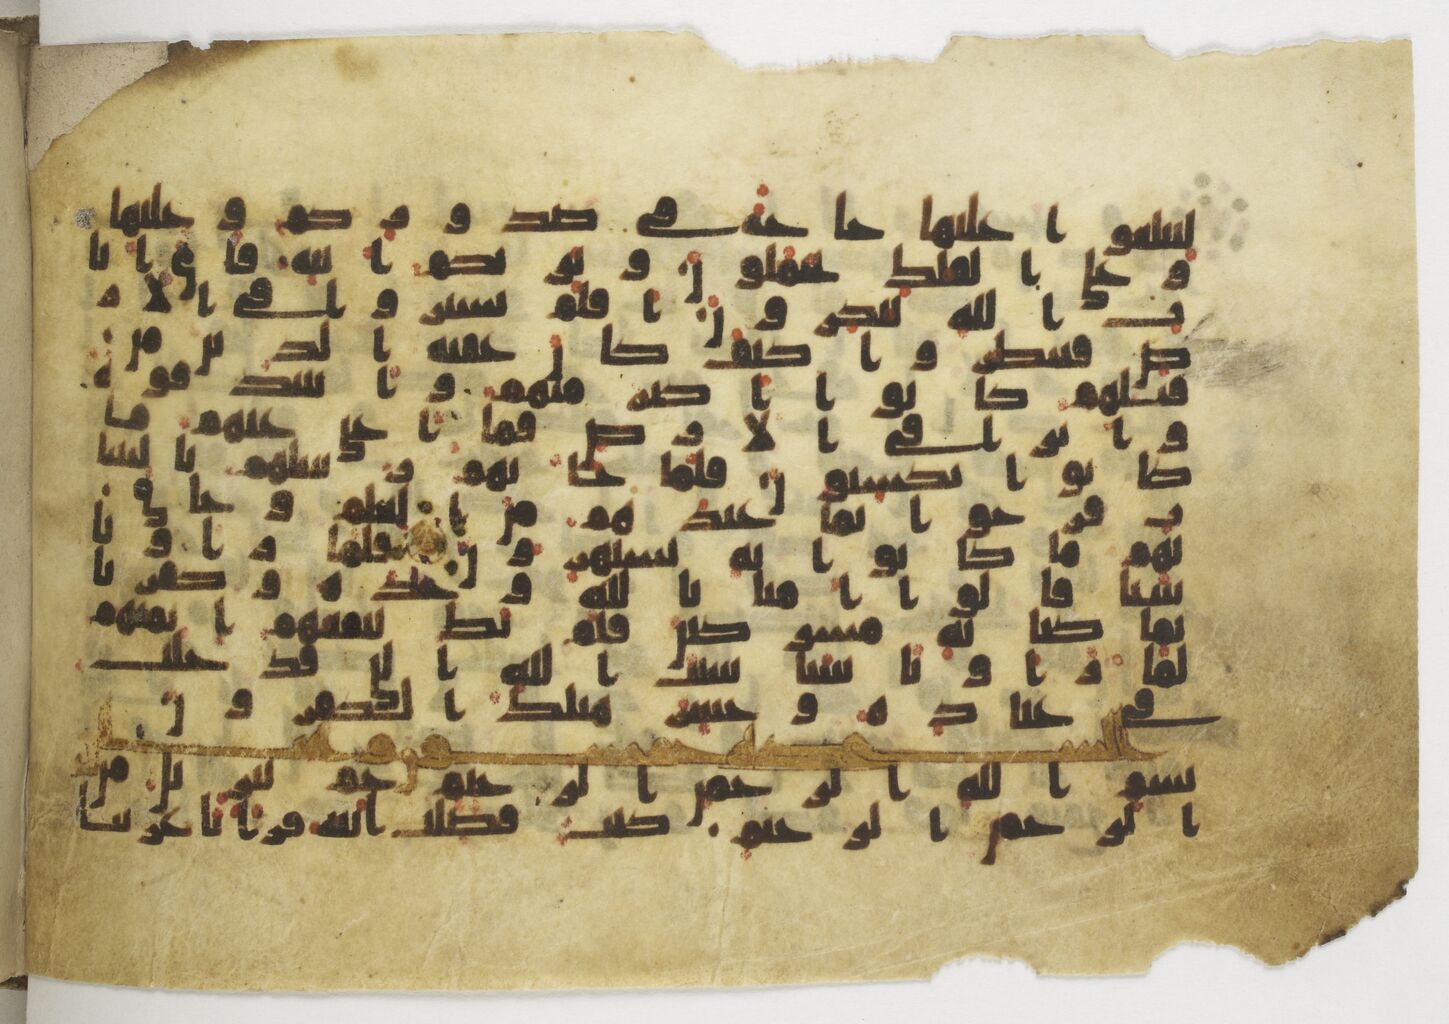 لتبلغوا عليها حاجة في صدوركم وعليها
وعلى الفلك تحملون ويريكم ايته فاي ايا
ت الله تنكرون افلم يسيروا في الار
ض فينظروا كيف كان عقبة الذين من
قبلهم كانوا اكثر منهم واشد قوة
واثارا في الارض فما اغنى عنهم ما
كانوا يكسبون فلما جاتهم رسلهم بالبينا
ت فرحوا بما عندهم من العلم وحاق ب
هم ما كانوا به يستهزون فلما راوا با
سنا قالوا امنا بالله وحده وكفرنا
بما كنا به مشركين فلم يك ينفعهم ايمنهم
لما راوا باسنا سنت الله التي قد خلت
في عباده وخسر هنالك الكفرون
بسم الله الرحمن الرحيم حم تنزيل من
الرحمن الرحيم كتب فصلت ايته قرانا عربيا